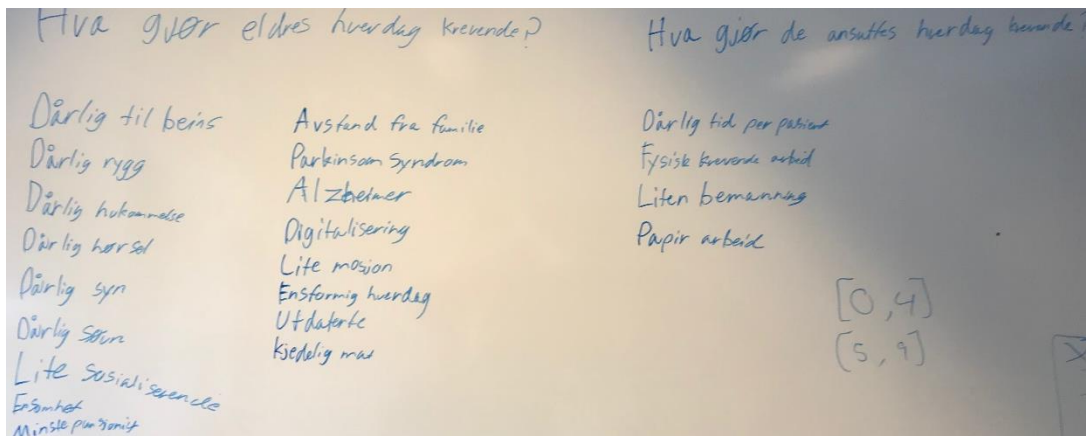 Hva gjør eldres hverdag krevende?
Dårlig til beins
Dårlig rygg
Dårlig hukommelse
Dårlig hørsel
Dårlig syn
Dårlig søvn
Lite sosialiserende
Ensomhet
Minste pensjonist
Avstand fra familie
Parkinson syndrom
Alzheimer
Digitalisering
Lite mosjon
Ensformig hverdag
Utdaterte
Kjedelig mat
Hva gjør de ansattes hverdag krevende?
Dårlig tid per pasient
Fysisk krevende arbeid
Liten bemanning
Papir arbeid
[0,4]
[5,9]